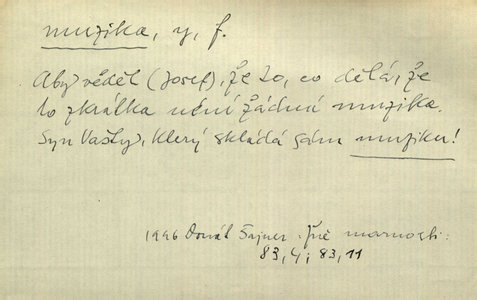 muzika, y, f.
Aby věděl (Josef), že to, co dělá, že
to zkrátka není žádná muzika.
Syn Vašty, který skládá sám muziku!
1996 Donát Šajner. Žně marnosti.
83, 4; 83, 11